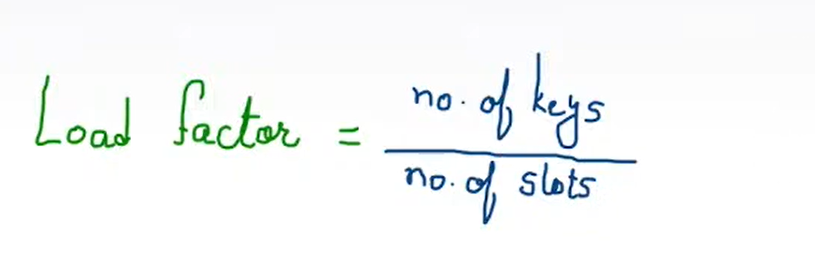 Load factor = no. of keys
no. of slots